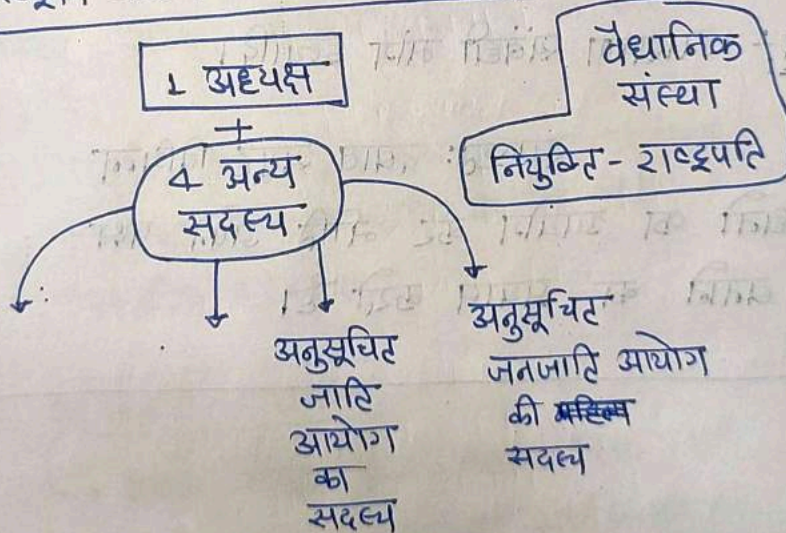 1 अध्यक्ष
+
4 अन्य
सदस्य
वैधानिक
संस्था
नियुक्ति - राष्ट्रपति
अनुसूचित
जाति
आयोग
का
सदस्य
अनुसूचित
जनजाति आयोग
की
सदस्य